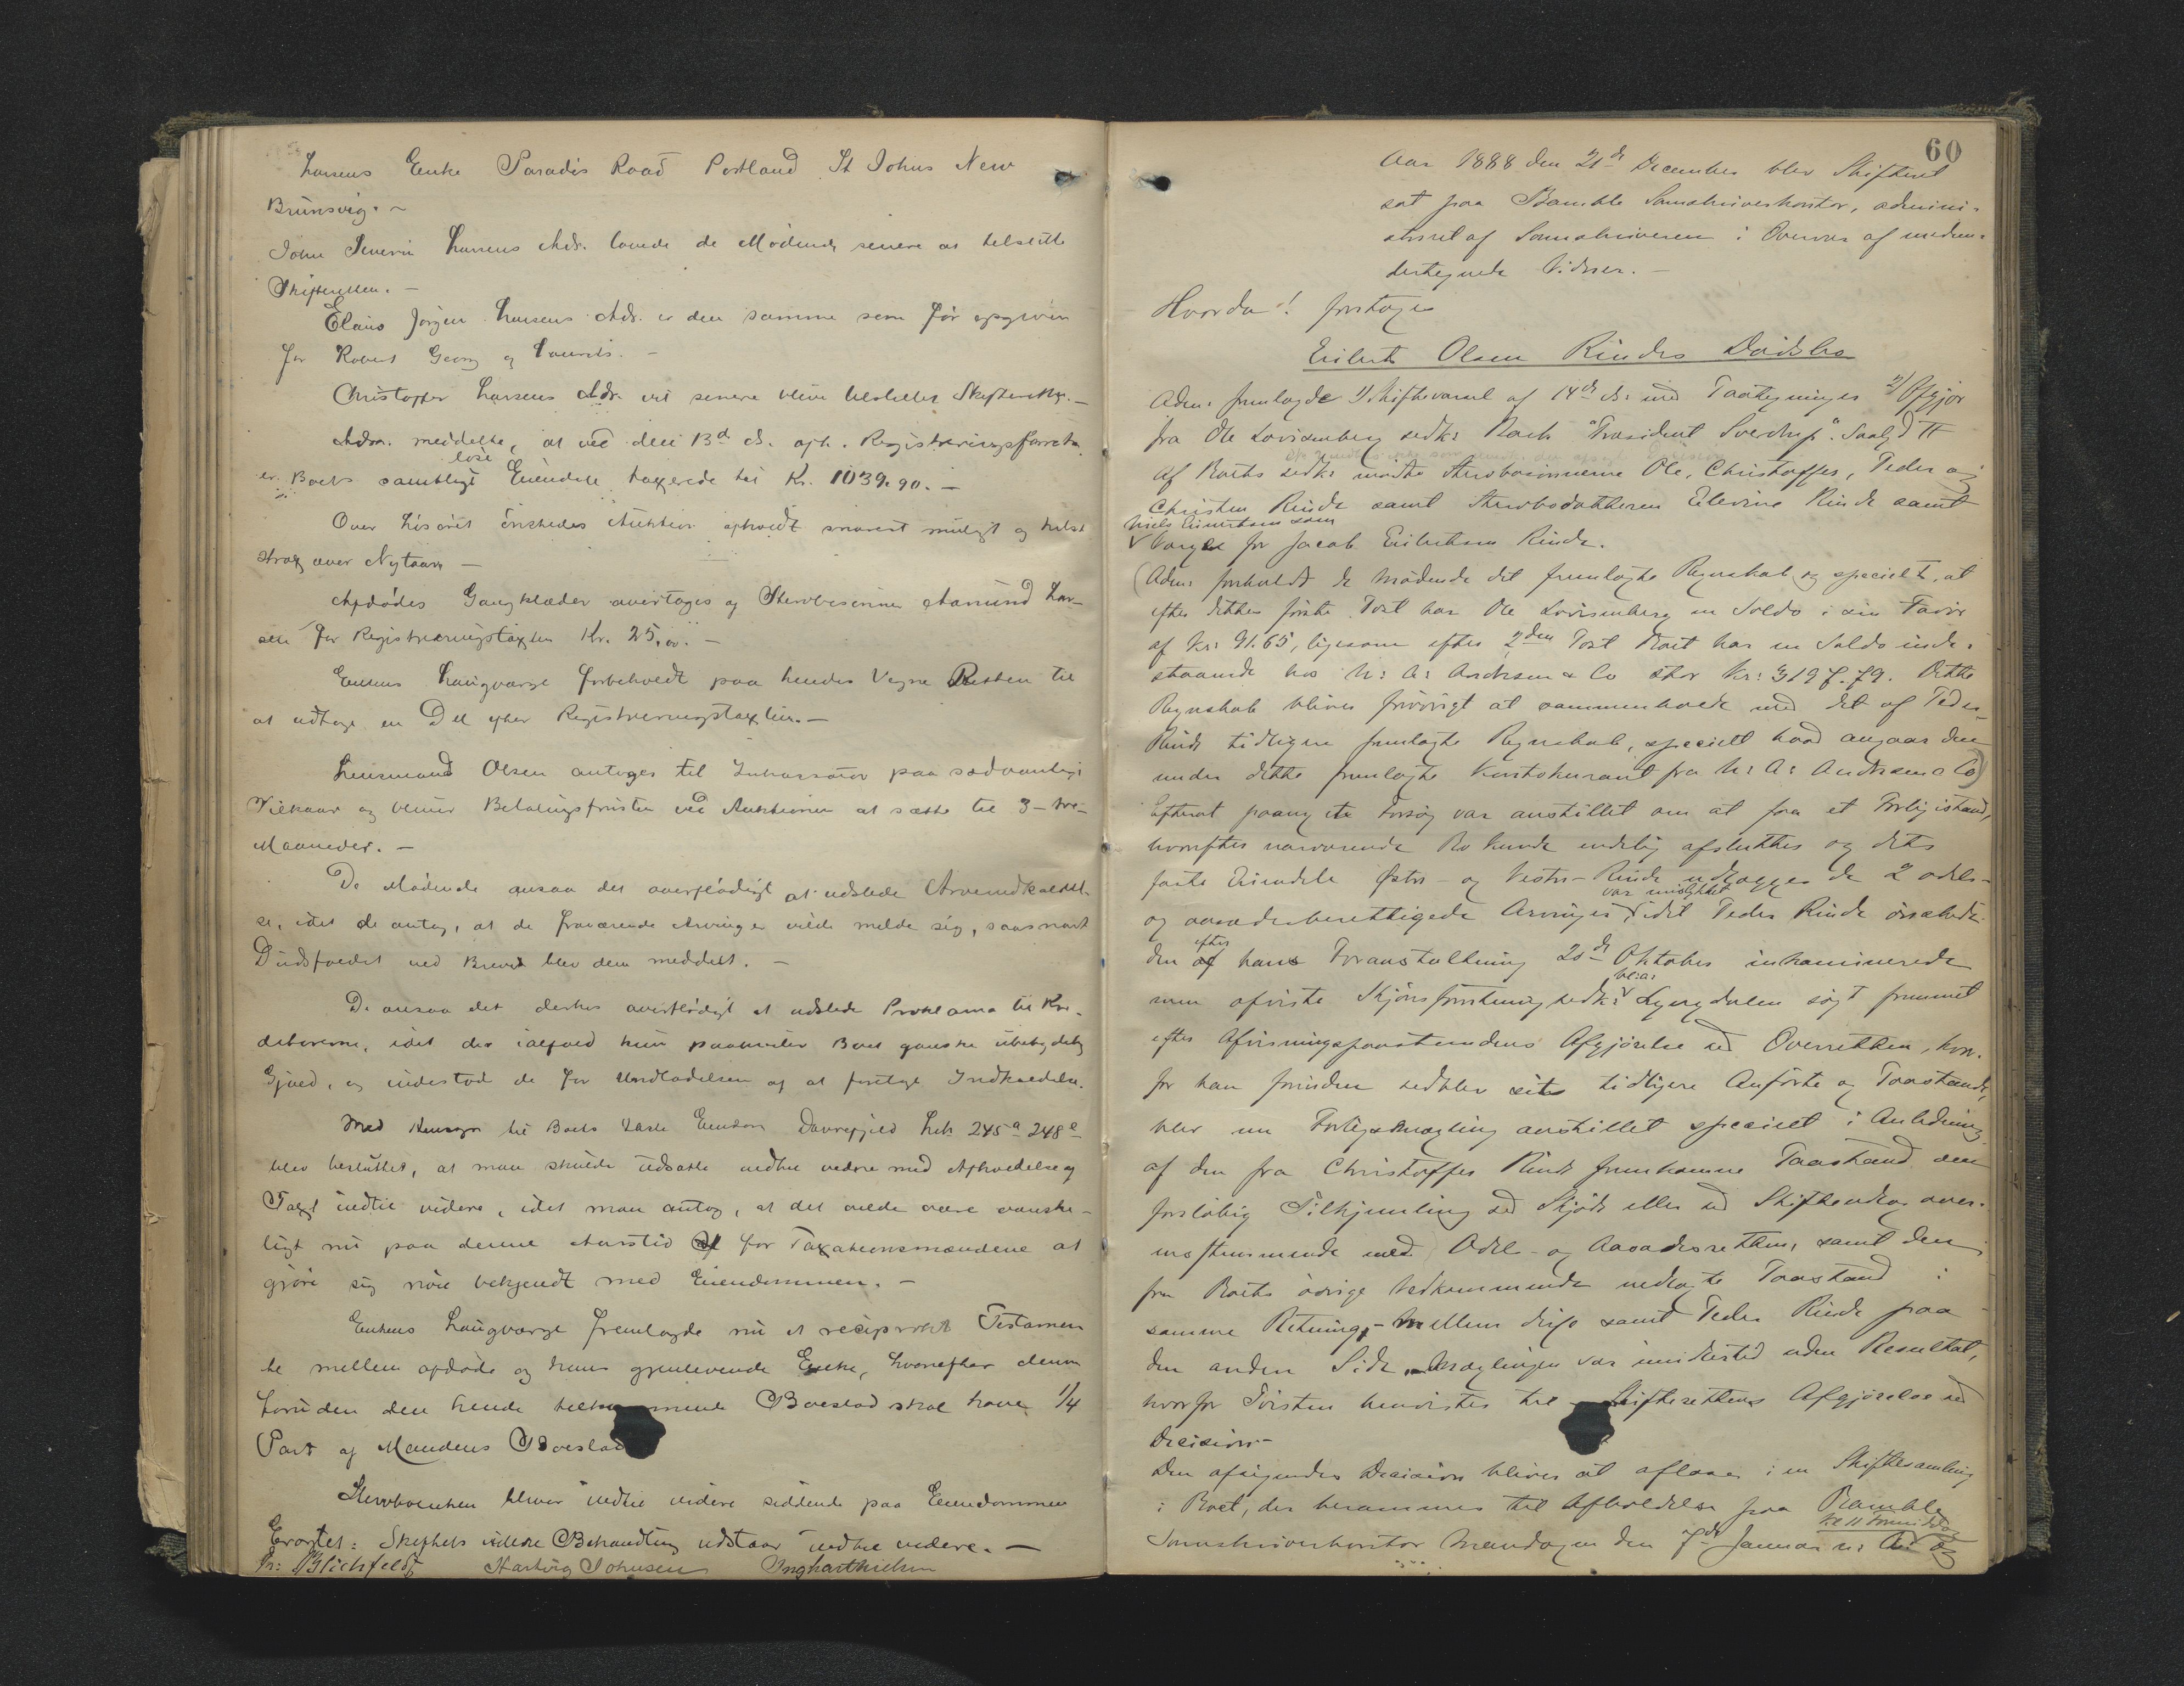 Larsens Enke Paradis Road Portland St Johns New
Brunsvig. -
John Severin Larsens Adr. lovede de Mødende senere at tilstille
Skifteretten. -
Elaus Jørgen Larsens Adr. er den samme som før opgiven
for Robert Georg og Laurits. -
Christoffer Larsens Adr. vil senere blive tilstillet Skifteretten. -
Adm. meddelte, at ved den 13de ds. oph. Registreringsforretn.
er Boets samtlige løse Eiendele taxerede til Kr. 1039.90. -
Over Løsøret ønskedes Auktion afholdt snarest muligt og helst
strax over Nytaar -
Afdødes Gangklæder overtoges af Stervbosønnen Aanund Lar-
sen for Registreringstaxten Kr. 25,00. -
Enkens Laugværge forbeholdt paa hendes Vegne Retten til
at udtage en Del efter Registreringstaxten. -
Lensmand Olsen antoges til Inkassator paa sædvanlige
Vilkaar og bliver Betalingsfristen ved Auktionen at sætte til 3 - tre -
Maaneder. -
De Mødende ansaa det overflødigt at udstede Arveindkaldel-
se, idet de antog, at de fraværende Arvinger vilde melde sig, saasnart
Dødsfaldet ved Breve blev dem meddelt. -
De ansaa det derhos overflødigt at udstede Proklama til Kre-
ditorerne, idet der ialfald kun paahviler Boet ganske ubetydelig
Gjæld, og indestod de for Undladelsen af at foretage Indkaldelse.
Med Hensyn til Boets faste Eiendom Davrefjeld Lek 245a 248e
blev besluttet, at man skulde udsætte indtil videre med Afholdelse af
Taxt indtil videre, idet man antog, at det vilde være vanske-
ligt nu paa denne Aarstid for Taxationsmændene at
gjøre sig nøie bekjendt med Eiendommen. -
Enkens Laugværge fremlagde nu et reciprokt Testamen
te mellem afdøde og hans gjenlevende Enke, hvorefter denne
foruden den hende tilkommende Boeslod skal have 1/4
Part af Mandens Boeslod
Stervboenken bliver indtil videre siddende paa Eiendommen
Exortet: Skiftets videre Behandling udstaar indtil videre. -
Fr: Blichfeldt Hartvig Johnsen Ingbarthielsen
60
Aar 1888 den 21de December blev Skifteret
sat paa Bamble Sorenskriverkontor, admini-
streret af Sorenskriveren i Overvær af meden-
dertegnede Vidner. -
Hvorda! foretoges
Eilert Olsen Rindes Dødsbo
Adm: fremlagde 1) Skiftevarsel af 14de ds: med Paategninger 2) Opgjør
fra Ole Lovisenberg vedk: Bark "Præsident Sverdrup".
Af Boets vedk: mødte Stervbosønnerne Ole, Christoffer, Peder og
Christen Rinde samt Stervbodatteren Elevine Rinde samt
Niels Einertsen som
Værge for Jacob Eilertsen Rinde.
(Adm: foreholdt de Mødende det fremlagte Regnskab og specielt, at
efter dettes første Post har Ole Lovisenberg en Saldo i sin Favør
af Kr: 91.65, ligesom efter 2den Post Boet har en Saldo inde-
staaende hos N: A: Andresen & Co stor Kr: 3197.79. Dette
Regnskab bliver forøvrigt at sammenholde med det af Peder
Rinde tidligere fremlagte Regnskab, specielt hvad angaar den
under dette fremlagte Kontokurant fra N: A: Andresen & Co)
Efterat paany et Forsøg var anstillet om at faa et Forlig istand,
hvorefter nærværende Bo kunde endelig afsluttes og dets
faste Eiendele Østre- og Vestre-Rinde udlægges de 2 odels-
og aasædesberettigede Arvinger var mislykket idet Peder Rinde ønskede
den efter hans Foranstaltning 20de Oktober inkaminerede
men afviste Skjønsforretning vedk: bl:a: Lyngdalen søgt fremmet
efter Afvisningspaastandens Afgjørelse ved Overretten, hvor-
for han forinden vedblev sit tidligere Anførte og Paastande,
blev nu Forligsmægling anstillet specielt i Anledning
af den fra Christoffer Rinde fremkomne Paastand om
foreløbig Tilkjendelse ved Skjøde eller ved Skifteudlæg over-
ensstemmende med Odel- og Aasædesretten, samt den
fra Boets øvrige Vedkommende nedlagte Paastand i
samme Retning, - Mellem disse samt Peder Rinde paa
den anden Side. Mæglingen var imidlertid uden Resultat,
hvorfor Tvisten henvistes til Skifterettens Afgjørelse ved
Decision -
Den afsigendes Decision bliver at aflæse i en Skiftesamling
i Boet, der berammes til Afholdelse paa Bamble
Sorenskriverkontor Mandagen den 7de Januar n: A: Kl 11 Formiddag